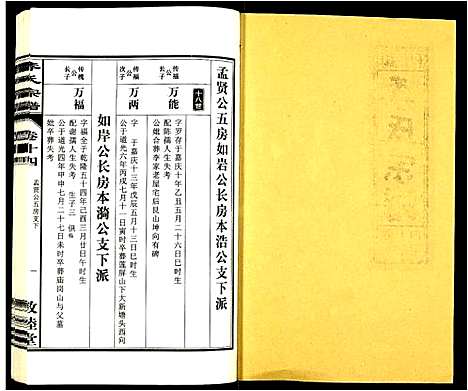 孟贤公五房如岩公长房本浩公支下派
十八世
传福
次子
万能
字罗存于嘉庆十年乙丑五月二十六日巳时生
配陈孺人生失考
公妣合葬李家老屋宅后艮山坤向有碑
传福
三子
万两
字 于嘉庆十三年戊辰五月十三日巳时生
公于道光六年丙戌七月十一日寅时卒葬莲屏山下大新塘头西向
如岸公长房本漪公支下派
传槐
长子
万福
字福全于乾隆五十四年己酉三月廿日午时生
配龚孺人生失考 生子三 俱殇
公于道光四年甲申七月二十七日未时卒葬庙岗山与父墓
妣卒葬失考
卷十四
孟贤公五房支下
一
敦睦堂